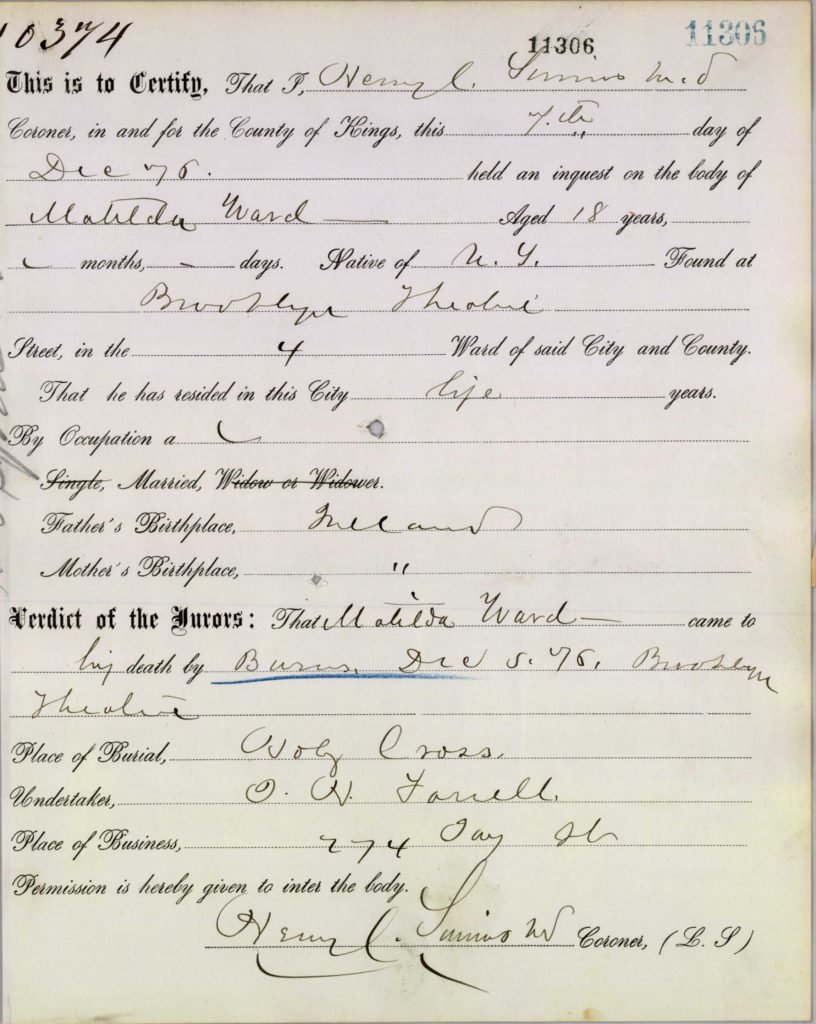 10374 11306 11306
This is to Certify, That I, Henry C. Simms M.D
Coroner, in and for the County of Kings, this 7th day of
Dec 76. held an inquest on the body of
Matilda Ward — Aged 18 years,
months, - days. Native of N.Y. Found at
Brooklyn Theatre
Street, in the 4 Ward of said City and County.
That he has resided in this City life years.
By Occupation a
Single, Married, Widow or Widower.
Father's Birthplace, Ireland
Mother's Birthplace, "
Verdict of the Jurors: That Matilda Ward — came to
his death by Burns. Dec 5. 76. Brooklyn
Theatre
Place of Burial, Holy Cross.
Undertaker, Farrell.
Place of Business, 274 Jay St
Permission is hereby given to inter the body.
Henry C. Simms MD Coroner, (L. S)